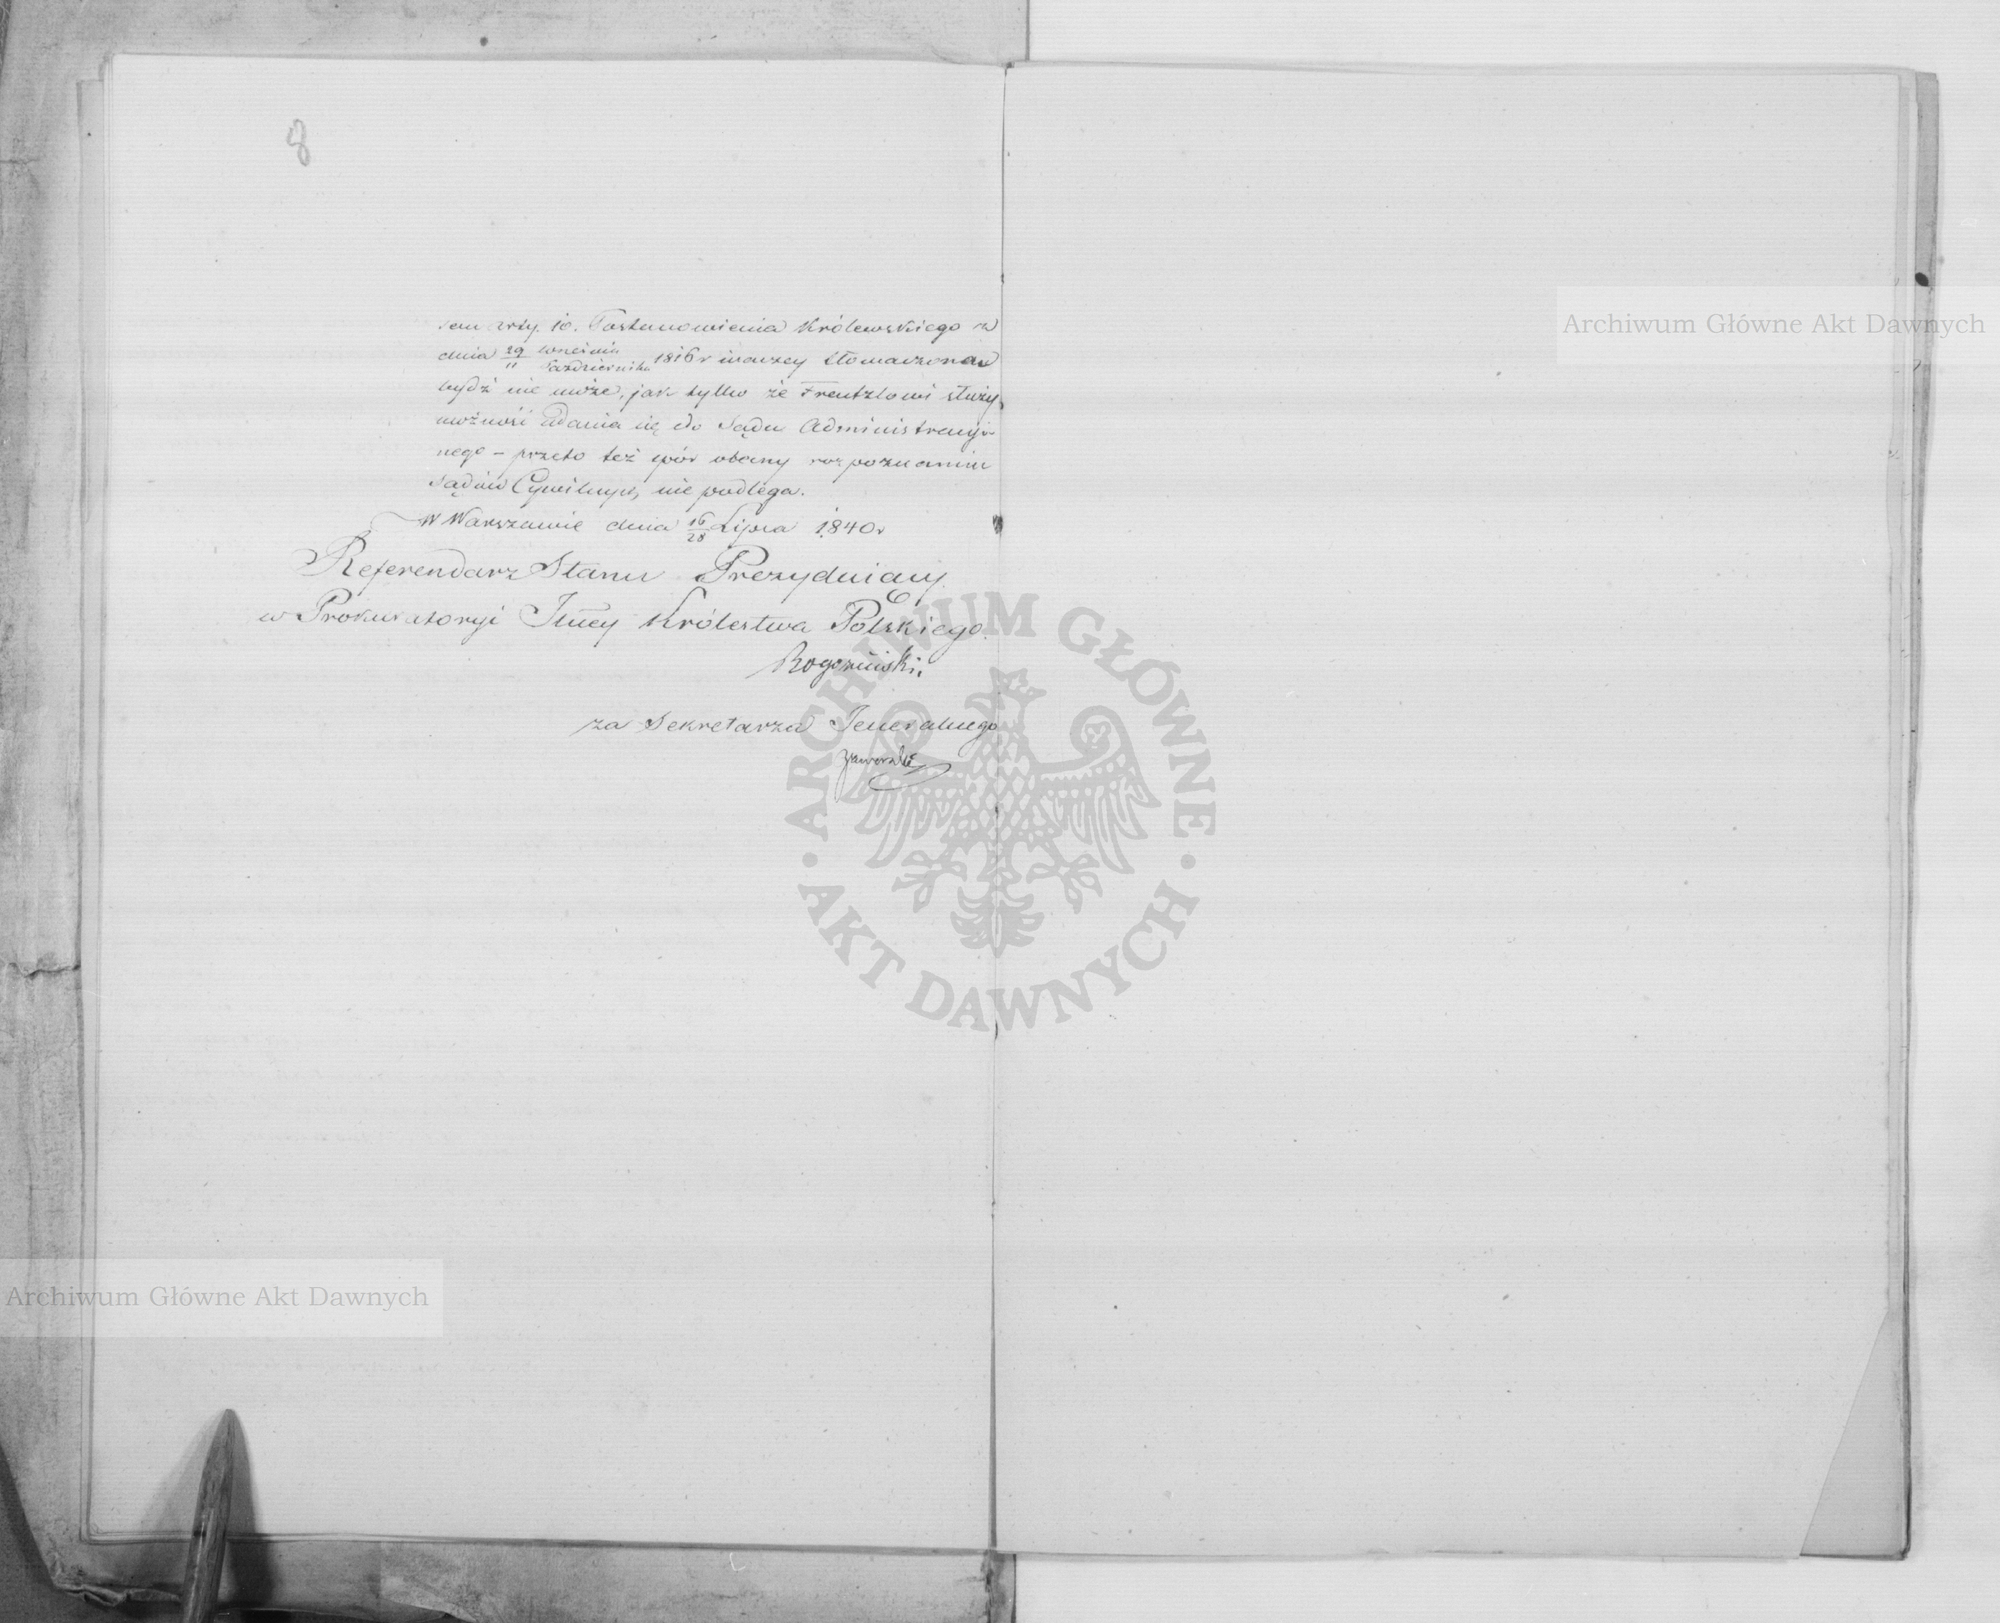 8
sem arty. 10. Postanowienia Królewskiego z
dnia 29/11 Września/Października 1816 r inaczej tłomaczonem
bydź nie może, jak tylko że Frentzlowi służy
możność udania się do Sądu Administracyj-
nego – przeto też spór obecny rozpoznaniu
Sądów Cywilnych nie podlega.
w Warszawie dnia 16/28 Lipca 1840 r
Referendarz Stanu Prezydujący
w Prokuratoryi Jlney Królestwa Polskiego.
Rogoziński.
za Sekretarza Jeneralnego
Jaworski
Archiwum Główne Akt Dawnych
ARCHIWUM GŁÓWNE · AKT DAWNYCH ·
Archiwum Główne Akt Dawnych